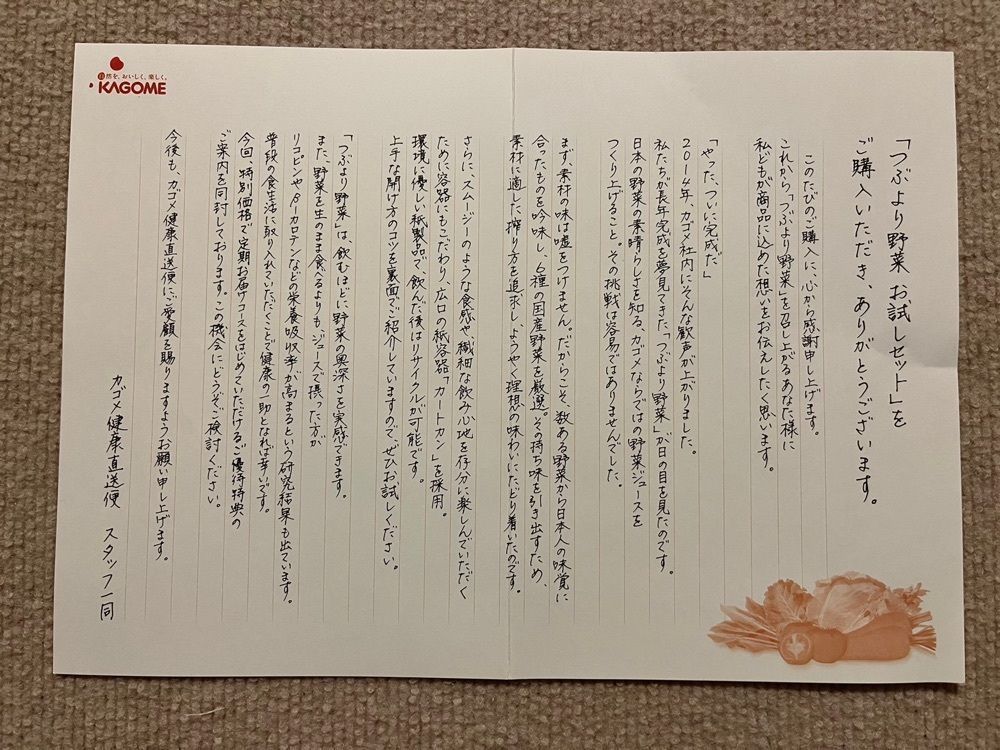 自然を、おいしく、楽しく。
KAGOME
「つぶより野菜 お試しセット」を
ご購入いただき、ありがとうございます。
このたびのご購入に、心から感謝申し上げます。
これから「つぶより野菜」を召し上がるあなた様に
私どもが商品に込めた想いをお伝えしたく思います。
「やった、ついに完成だ」
2014年、カゴメ社内にそんな歓声が上がりました。
私たちが長年完成を夢見てきた「つぶより野菜」が日の目を見たのです。
日本の野菜の素晴らしさを知る、カゴメならではの野菜ジュースを
つくり上げること。その挑戦は容易ではありませんでした。
まず、素材の味は嘘をつけません。だからこそ、数ある野菜から日本人の味覚に
合ったものを吟味し、6種の国産野菜を厳選。その持ち味を引き出すため、
素材に適した搾り方を追求し、ようやく理想の味わいに、たどり着いたのです。
さらに、スムージーのような食感や繊細な飲み心地を存分に楽しんでいただく
ために容器にもこだわり、広口の紙容器「カートカン」を採用。
環境に優しい紙製品で、飲んだ後はリサイクルが可能です。
上手な開け方のコツを裏面でご紹介していますので、ぜひお試しください。
「つぶより野菜」は、飲むほどに野菜の奥深さを実感できます。
また、野菜を生のまま食べるよりも、ジュースで摂った方が
リコピンやβ-カロテンなどの栄養吸収率が高まるという研究結果も出ています。
普段の食生活に取り入れていただくことで健康の一助となれば幸いです。
今回、特別価格で定期お届けコースをはじめていただけるご優待特典の
ご案内を同封しております。この機会にどうぞご検討ください。
今後も、カゴメ健康直送便にご愛顧を賜りますようお願い申し上げます。
カゴメ健康直送便 スタッフ一同